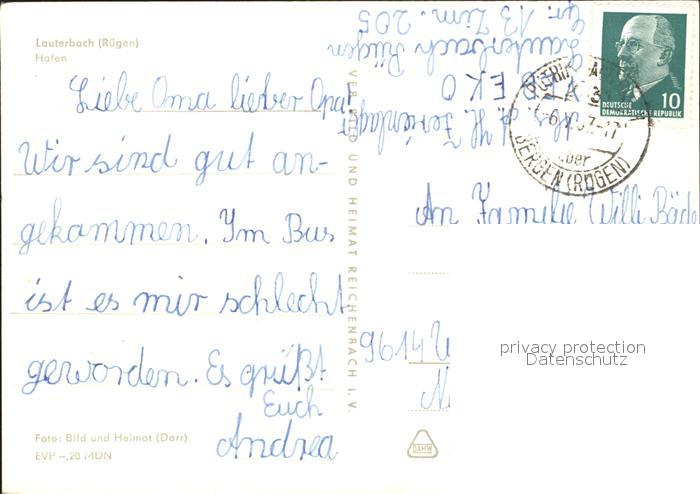 Lauterbach (Rügen)
Hafen
Liebe Oma lieber Opa!
Wir sind gut an-
gekommen. Im Bus
ist es mir schlecht
geworden. Es grüßt
Euch
Andrea
Foto: Bild und Heimat (Darr)
EVP –,20 MDN
VERLAG BILD UND HEIMAT REICHENBACH I. V.
Ferienlager
Lauterbach Rügen
Gr. 13 Zim. 205
DEUTSCHE
DEMOKRATISCHE REPUBLIK
10
über
BERGEN (RÜGEN)
An Familie Willi
9614
privacy protection
Datenschutz